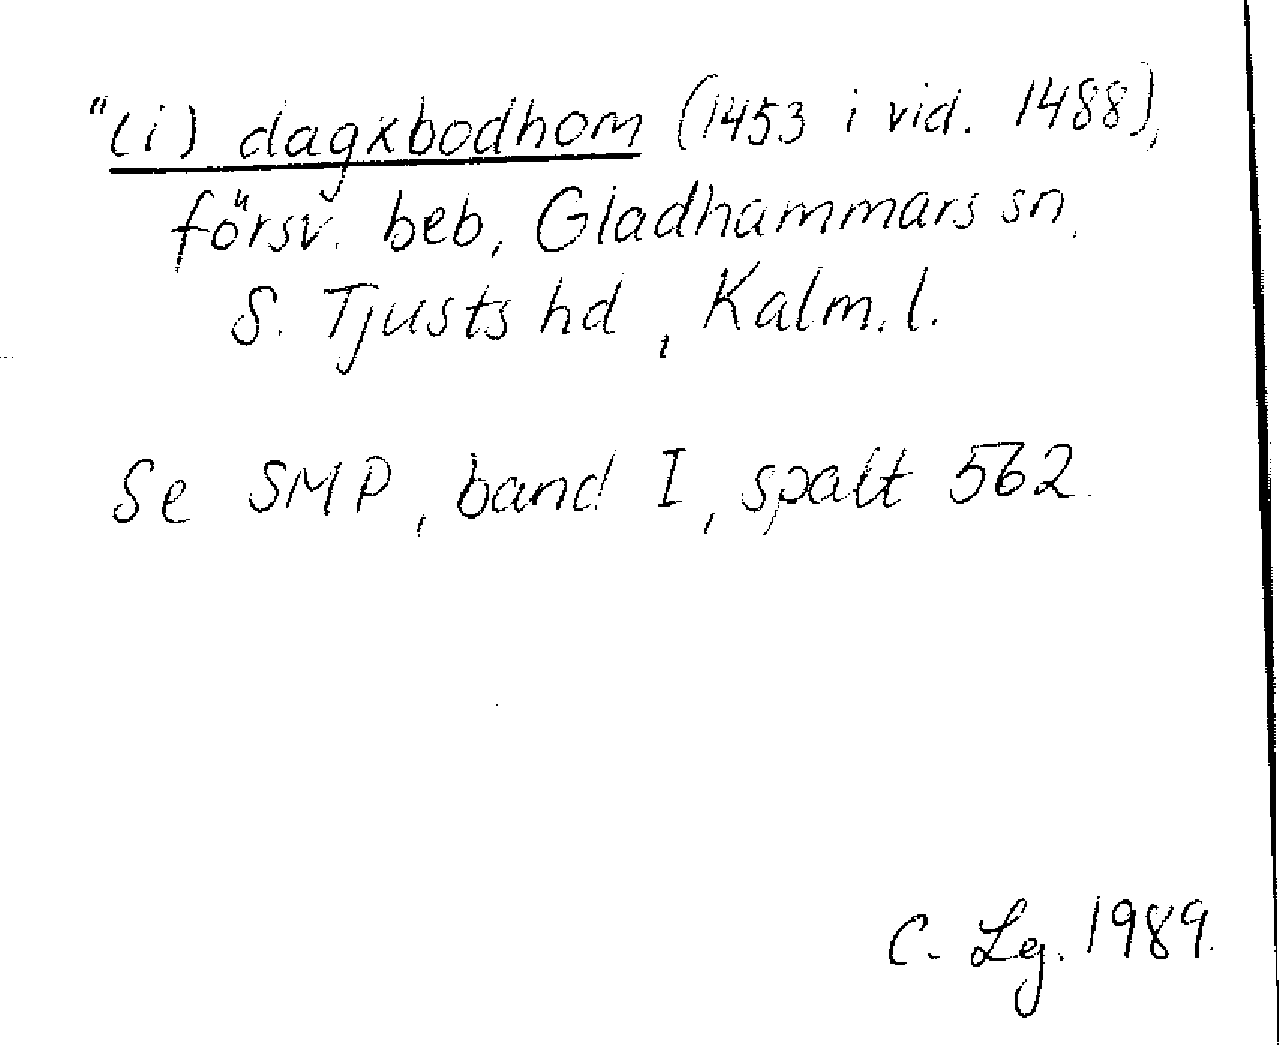 "(i) dagxbodhom (1453 i vid. 1488),
försv. beb, Gladhammars sn,
S. Tjusts hd, Kalm. l.
Se SMP, band I, spalt 562.
C. Lg. 1989.